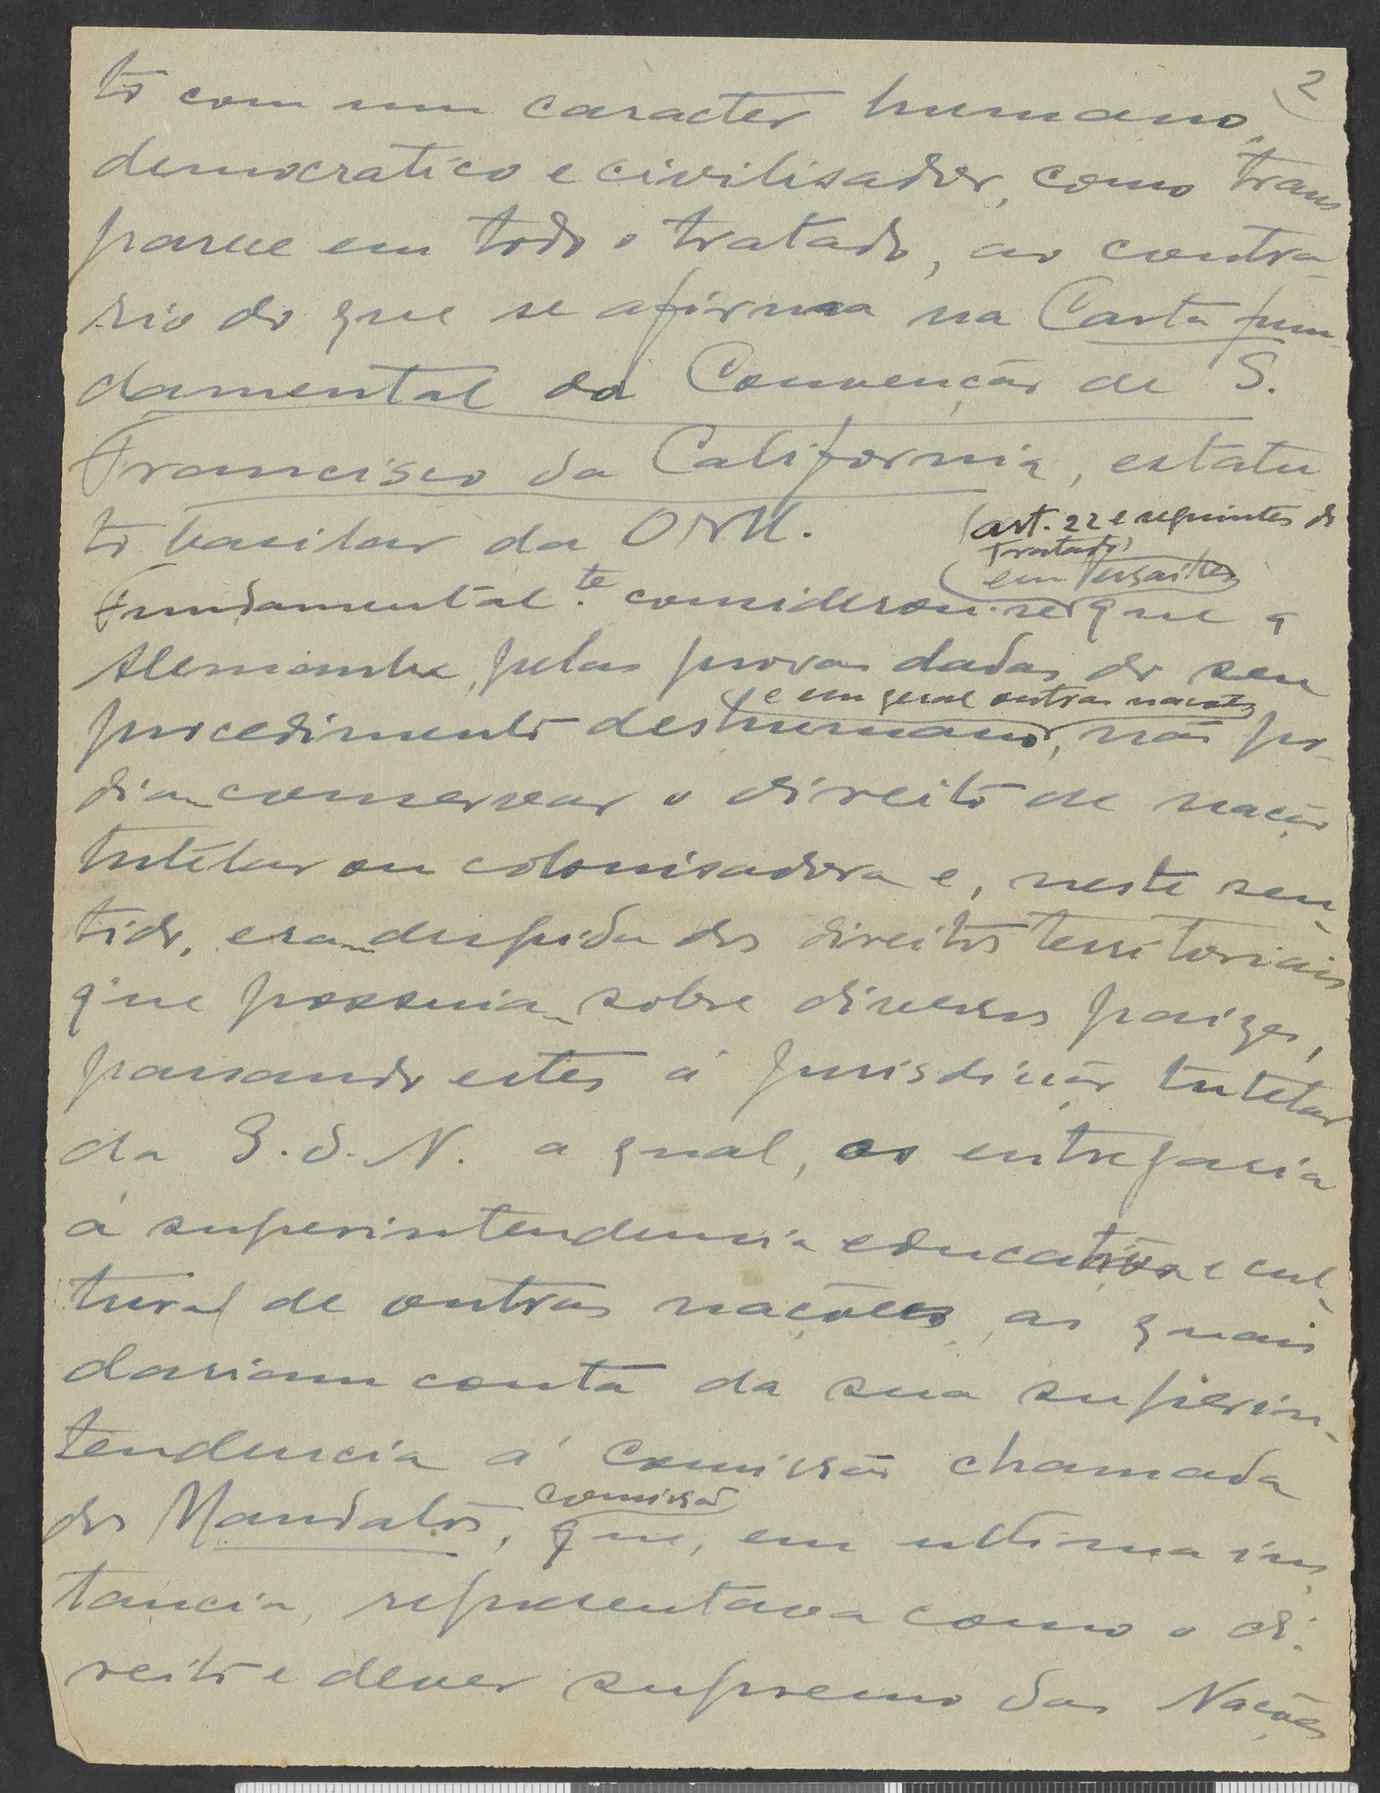 2
to com um caracter humano,
democratico e civilisador, como trans
parece em todo o tratado, ao contra-
rio do que se afirma na Carta fun-
damental da Convenção de S.
Francisco da California, estatu
to basilar da ONU.
(art. 22 e seguintes do
Tratado)
em Versailles
Fundamental.te considerou-se que a
Alemanha, pelas provas dadas do seu
e em geral outras nações
procedimento deshumano, não po-
dia conservar o direito de nação
tutelar ou colonisadora e, neste sen-
tido, era despida dos direitos territoriais
que possuia sobre diversos paizes,
passando estes á jurisdição tutelar
da S. d. N. a qual, os entregaria
á superintendencia educativa e cul-
tural de outras nações, as quais
dariam conta da sua superin-
tendencia á Comissão chamada
comissão
dos Mandatos, que, em ultima ins
tancia, representava como o di-
reito e dever supremo das Nações